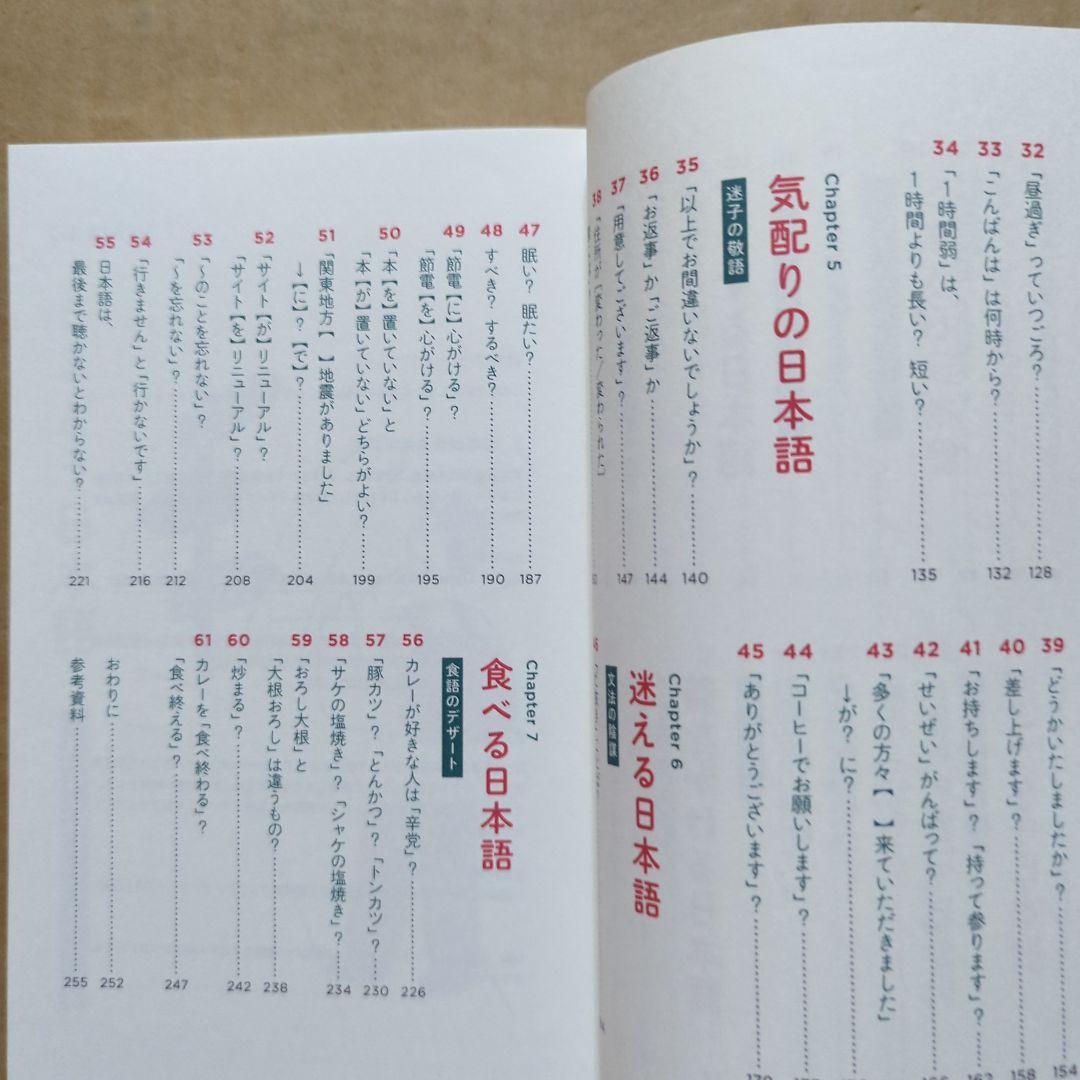 32
「昼過ぎ」っていつごろ？ 128
33
「こんばんは」は何時から？ 132
34
「1時間弱」は、
1時間よりも長い？ 短い？ 135
Chapter 5
気配りの日本語
迷子の敬語
35
「以上でお間違いないでしょうか」？ 140
36
「お返事」か「ご返事」か 144
37
「用意してございます」？ 147
38
39
「どうかいたしましたか」？ 154
40
「差し上げます」？ 158
41
「お持ちします」？ 「持って参ります」？ 162
42
「せいぜい」がんばって？
43
「多くの方々【 】来ていただきました」
→が？ に？
44
「コーヒーでお願いします」？
45
「ありがとうございます」？
Chapter 6
迷える日本語
文法の陰謀
47
眠い？ 眠たい？ 187
48
すべき？ するべき？ 190
49
「節電【に】心がける」？
「節電【を】心がける」？ 195
50
「本【を】置いていない」と
「本【が】置いていない」どちらがよい？ 199
51
「関東地方【 】地震がありました」
→【に】？【で】？ 204
52
「サイト【が】リニューアル」？
「サイト【を】リニューアル」？ 208
53
「〜のことを忘れない」？
「〜を忘れない」？ 212
54
「行きません」と「行かないです」 216
55
日本語は、
最後まで聴かないとわからない？ 221
Chapter 7
食べる日本語
食語のデザート
56
カレーが好きな人は「辛党」？ 226
57
「豚カツ」？「とんかつ」？「トンカツ」？ 230
58
「サケの塩焼き」？「シャケの塩焼き」？ 234
59
「おろし大根」と
「大根おろし」は違うもの？ 238
60
「炒まる」？ 242
61
カレーを「食べ終わる」？
「食べ終える」？ 247
おわりに 252
参考資料 255